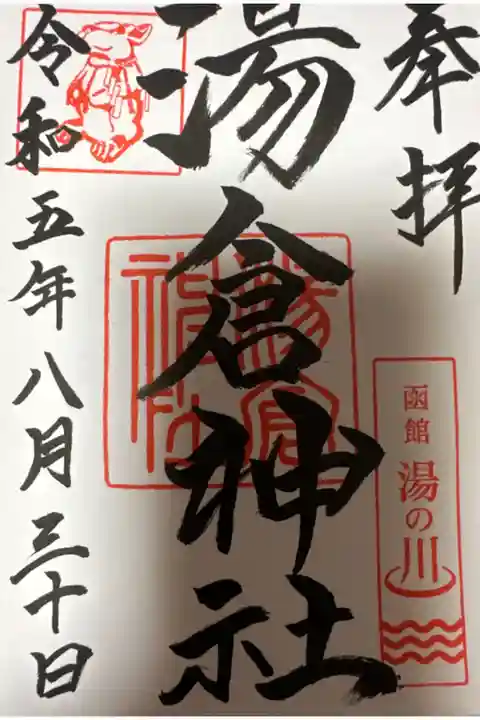 奉拝
函館 湯の川
湯倉神社
湯倉神社
令和五年八月三十日